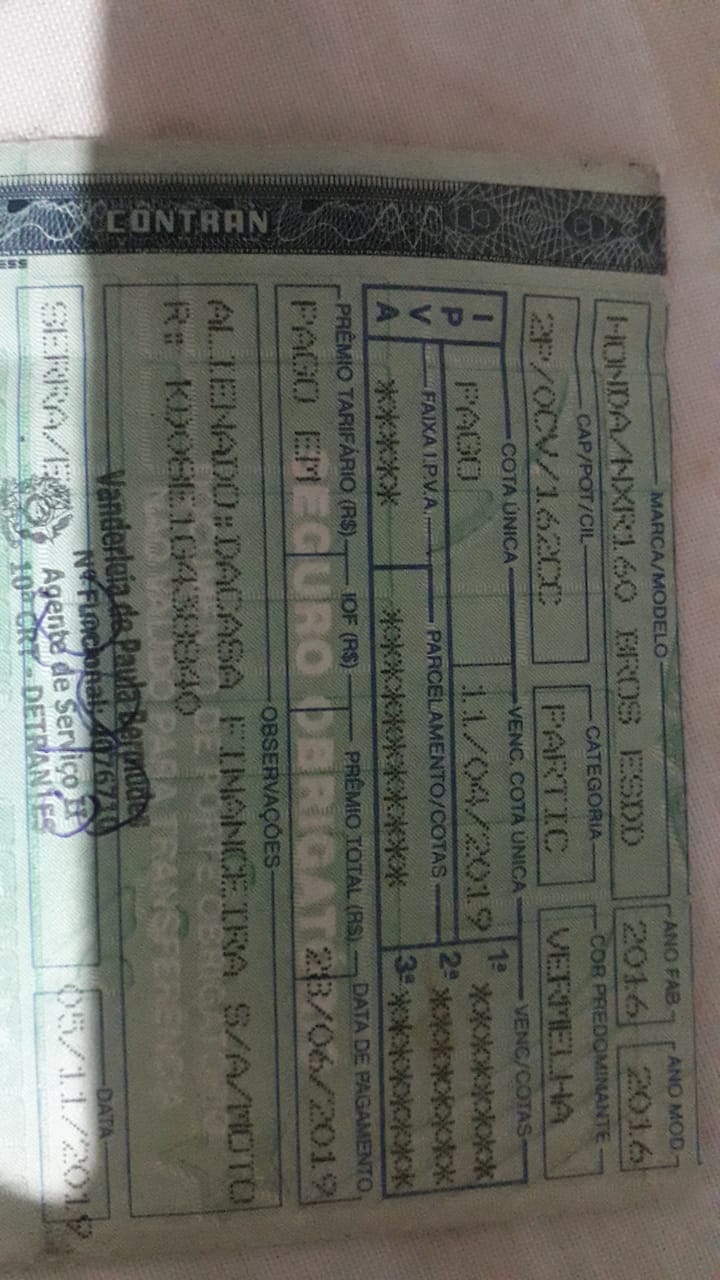 CONTRAN
MARCA/MODELO ANO FAB. ANO MOD.
HONDA/NXR160 BROS ESDD 2016 2016
CAP/POT/CIL CATEGORIA COR PREDOMINANTE
2P/0CV/162CC PARTIC VERMELHA
IPVA
COTA ÚNICA VENC. COTA ÚNICA VENC/COTAS
PAGO 11/04/2019 1ª ********
FAIXA I.P.V.A. PARCELAMENTO/COTAS 2ª ********
***** ************* 3ª ********
PRÊMIO TARIFÁRIO (R$) IOF (R$) PRÊMIO TOTAL (R$) DATA DE PAGAMENTO
PAGO EM 28/06/2019
SEGURO
OBSERVAÇÕES
ALIENADO:DACASA FINANCEIRA S/A/MOTO
DE PORTE
R: KD08E1G430840
NÃO VÁLIDO PARA TRANSFERÊNCIA
DATA
SERRA/E 05/11/2019
Vanderleia de Paula Bermudes
Nº Funcional: 4076710
Agente de Serviço II
10ª CRT - DETRAN/ES